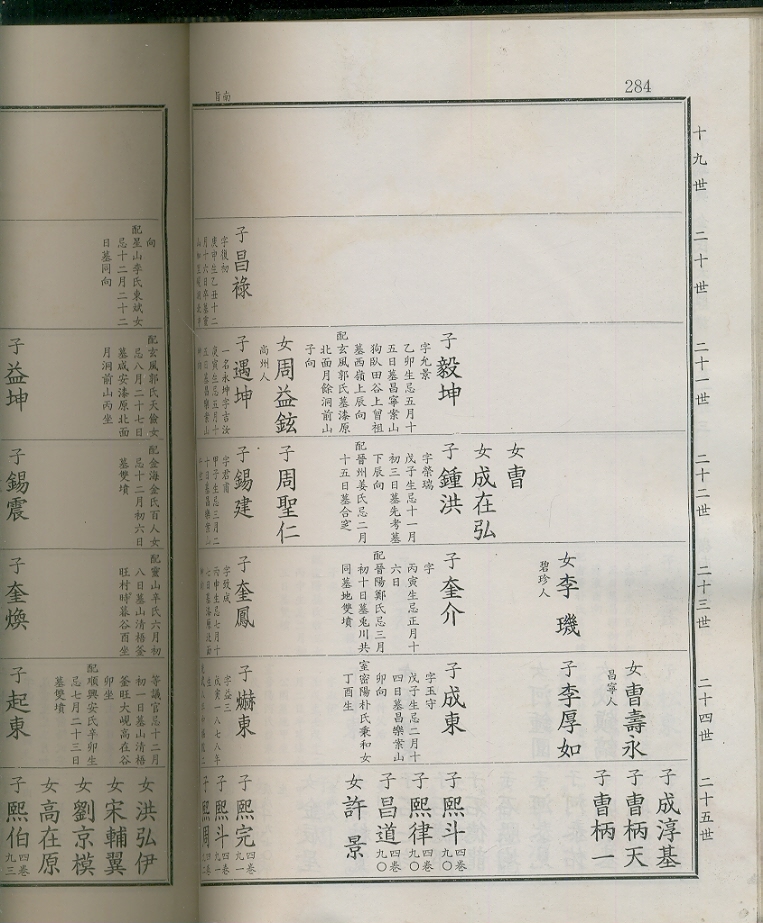 284
十九世
二十世
二十一世
二十二世
二十三世
二十四世
二十五世
子昌祿
字復初
子毅坤
字允景
乙卯生忌五月十
五日墓昌寧案山
狗臥田谷上曾祖
墓西嶺上辰向
配玄風郭氏墓漆原
北面月餘洞前山
子向
女周益鉉
尚州人
子遇坤
一名永坤字吉汝
庚寅生忌五月十
五日墓昌樂案山
女曺
女成在弘
子鍾洪
字榮瑞
戊子生忌十一月
初三日墓先考墓
下辰向
配晉州姜氏忌二月
十五日墓合窆
子周聖仁
子錫建
字君甫
甲子生忌三月二
十日墓昌樂案山
女李璣
碧珍人
子奎介
字
丙寅生忌正月十
六日
配晉陽鄭氏忌三月
初十日墓兎川共
同墓地雙墳
子奎鳳
字致成
丙申生忌七月十
女曺壽永
昌寧人
子李厚如
子成東
字玉守
戊子生忌二月十
四日墓昌樂案山
卯向
室密陽朴氏秉和女
丁酉生
子爀東
字益三
戊寅一八七八年
子成淳基
子曺柄天
子曺柄一
子熙斗
四卷九〇
子熙律
四卷九〇
子昌道
四卷九〇
女許景
子熙完
四卷九一
子熙斗
四卷九一
子熙周
向
配星山李氏東斌女
忌十二月二十二
日墓同向
配玄風郭氏天儉女
忌八月二十七日
墓咸安漆原北面
月洞前山丙坐
子益坤
配金海金氏百人女
忌十二月初六日
墓雙墳
子錫震
配靈山辛氏六月初
八日墓山清梧釜
旺村時暮谷酉坐
子奎煥
等議官忌十二月
初一日墓山清梧
釜旺大峴高在谷
卯坐
配順興安氏辛卯生
忌七月二十三日
墓雙墳
子起東
女洪弘伊
女宋輔翼
女劉京模
女高在原
子熙伯
四卷九三